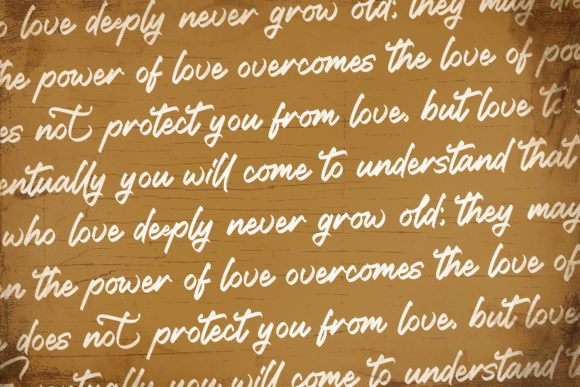 o love deeply never grow old: they may di
the power of love overcomes the love of po
es not protect you from love. but love to
entually you will come to understand that
who love deeply never grow old; they may
n the power of love overcomes the love of
does not protect you from love. but love
entually you will come to understand t